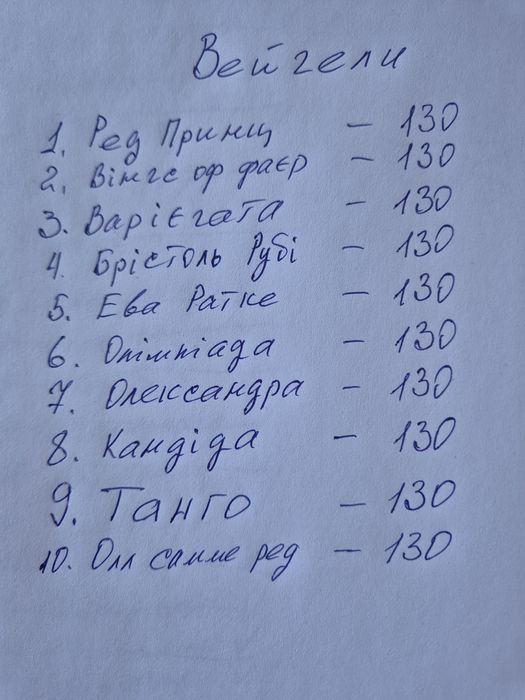 Вейгели
1. Ред Принц - 130
2. Вінгс оф фаєр - 130
3. Варієгата - 130
4. Брістоль Рубі - 130
5. Ева Ратке - 130
6. Олімпіада - 130
7. Олександра - 130
8. Кандіда - 130
9. Танго - 130
10. Олл самме ред - 130